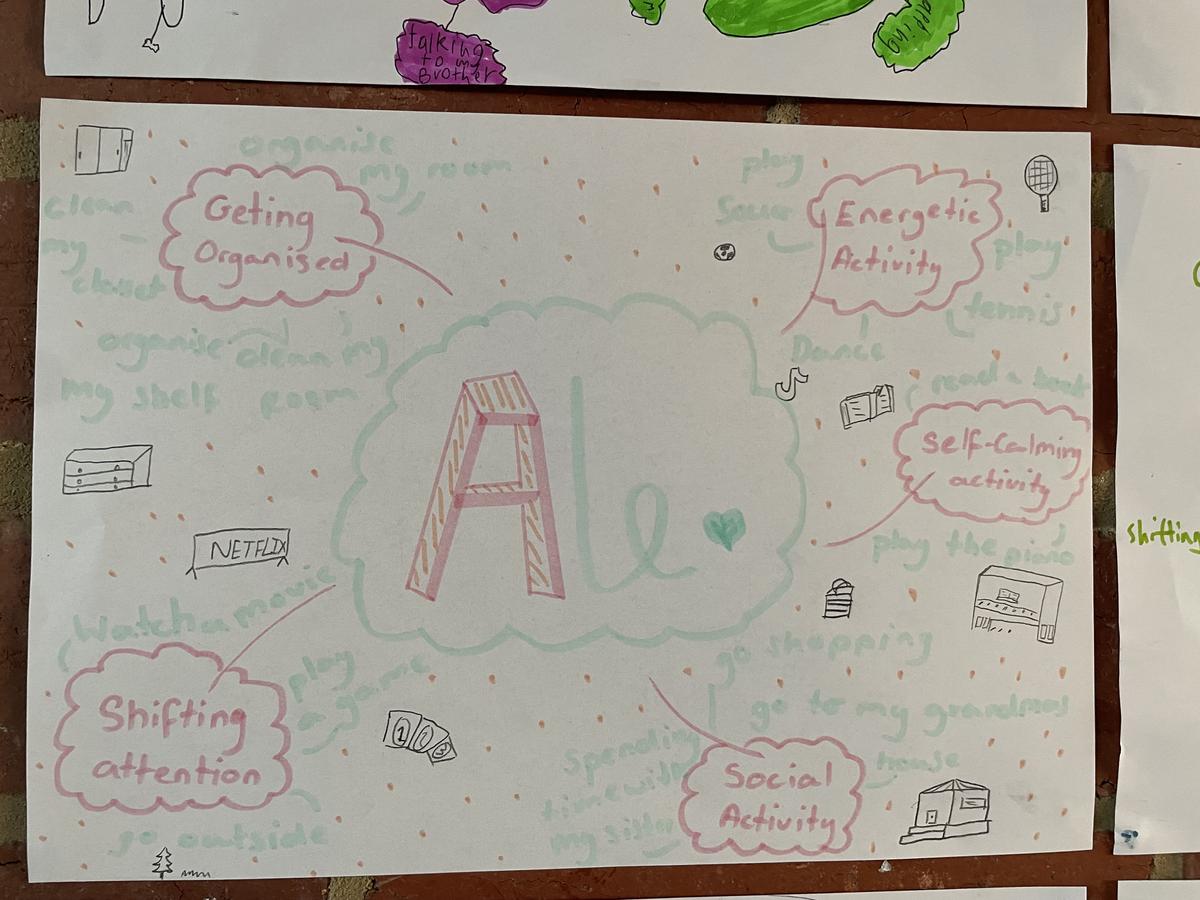 talking
to my
Brother
organise
my room
Geting
Organised
clean
my
closet
organise
my shelf
clean my
room
play
Soccer
Energetic
Activity
play
tennis
Dance
read a book
Self-Calming
activity
play the piano
NETFLIX
Watch a movie
play
a game
Shifting
attention
1 2 3
go outside
go shopping
go to my grandmas
house
Spending
time with
my sister
Social
Activity
shifting